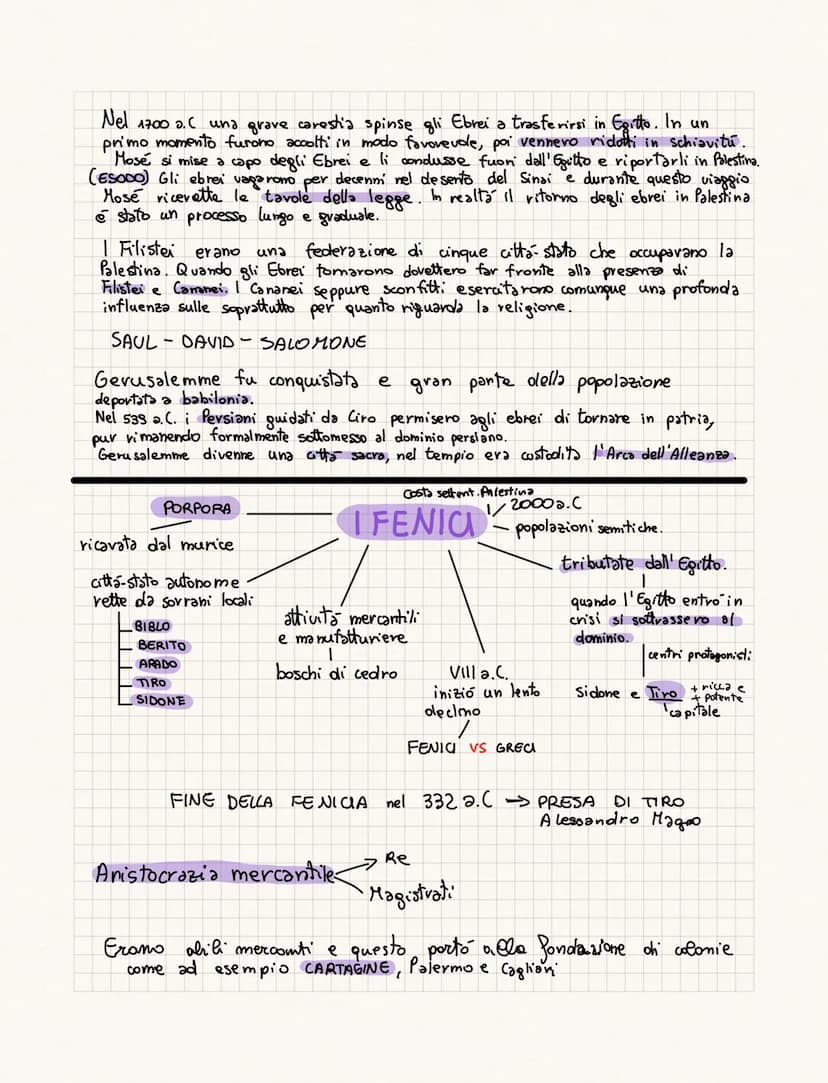 Nel 1700 a.C una grave carestia spinse gli Ebrei a trasferirsi in Egitto. In un
primo momento furono accolti in modo favorevole, poi vennero ridotti in schiavitú.
Mosé si mise a capo degli Ebrei e li condusse fuori dall'Egitto e riportarli in Palestina.
(ESODO) Gli ebrei vagarono per decenni nel deserto del Sinai e durante questo viaggio
Mosé ricevette le tavole della legge. In realtá il ritorno degli ebrei in Palestina
é stato un processo lungo e graduale.
I Filistei erano una federazione di cinque cittá-stato che occupavano la
Palestina. Quando gli Ebrei tornarono dovettero far fronte alla presenza di
Filistei e Cananei. I Cananei seppure sconfitti esercitarono comunque una profonda
influenza sulle soprattutto per quanto riguarda la religione.
SAUL - DAVID - SALOMONE
Gerusalemme fu conquistata e gran parte della popolazione
deportata a babilonia.
Nel 539 a.C. i Persiani guidati da Ciro permisero agli ebrei di tornare in patria,
pur rimanendo formalmente sottomesso al dominio persiano.
Gerusalemme divenne una cittá sacra, nel tempio era custodita l'Arca dell'Alleanza.
costa settent. Palestina
PORPORA
I FENICI
2000 a.C
popolazioni semitiche.
ricavata dal murice
tributate dall'Egitto.
cittá-stato autonome
rette da sovrani locali
BIBLO
BERITO
ARADO
TIRO
SIDONE
attivitá mercantili
e manufatturiere
boschi di cedro
VIII a.C.
inizió un lento
declino
FENICI VS GRECI
quando l'Egitto entró in
crisi si sottrassero al
dominio.
centri protagonisti
Sidone e Tiro + ricca e
+ potente
capitale
FINE DELLA FENICIA nel 332 a.C → PRESA DI TIRO
Alessandro Magno
Aristocrazia mercantile
Re
Magistrati
Erano abili mercanti e questo portó alla fondazione di colonie
come ad esempio CARTAGINE, Palermo e Cagliari